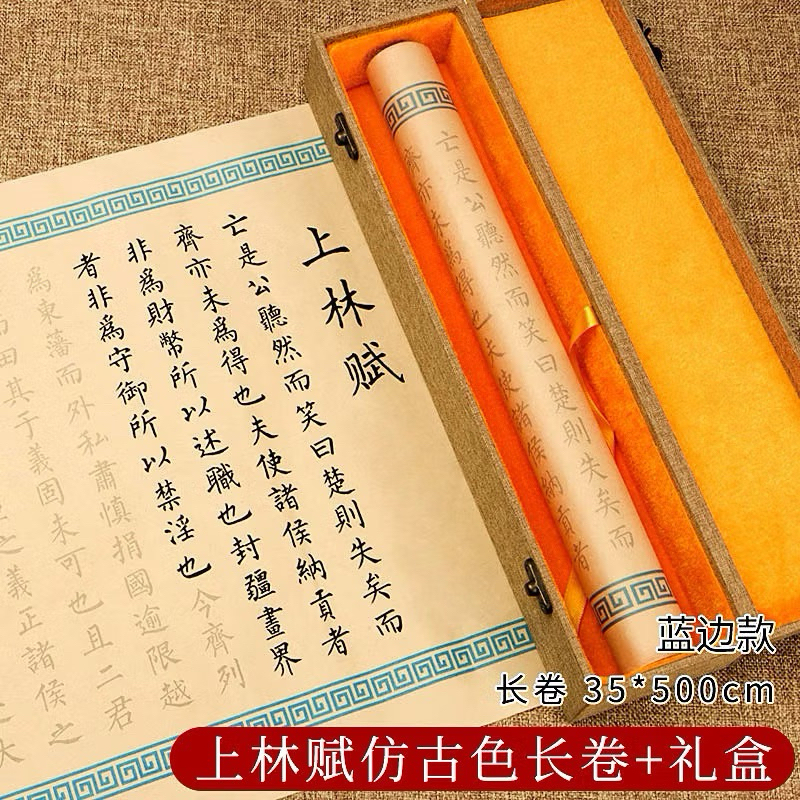 上林赋
亡是公聽然而笑曰楚則失矣而
齊亦未爲得也夫使諸侯納貢者
非爲財幣所以述職也封疆畫界
者非爲守御所以禁淫也今齊列
爲東藩而外私肅慎捐國逾限越
而田其于義固未可也且二君
之義正諸侯之
亡是公聽然而笑曰楚則失矣而
齊亦未爲得也夫使諸侯納貢者
蓝边款
长卷 35*500cm
上林赋仿古色长卷+礼盒